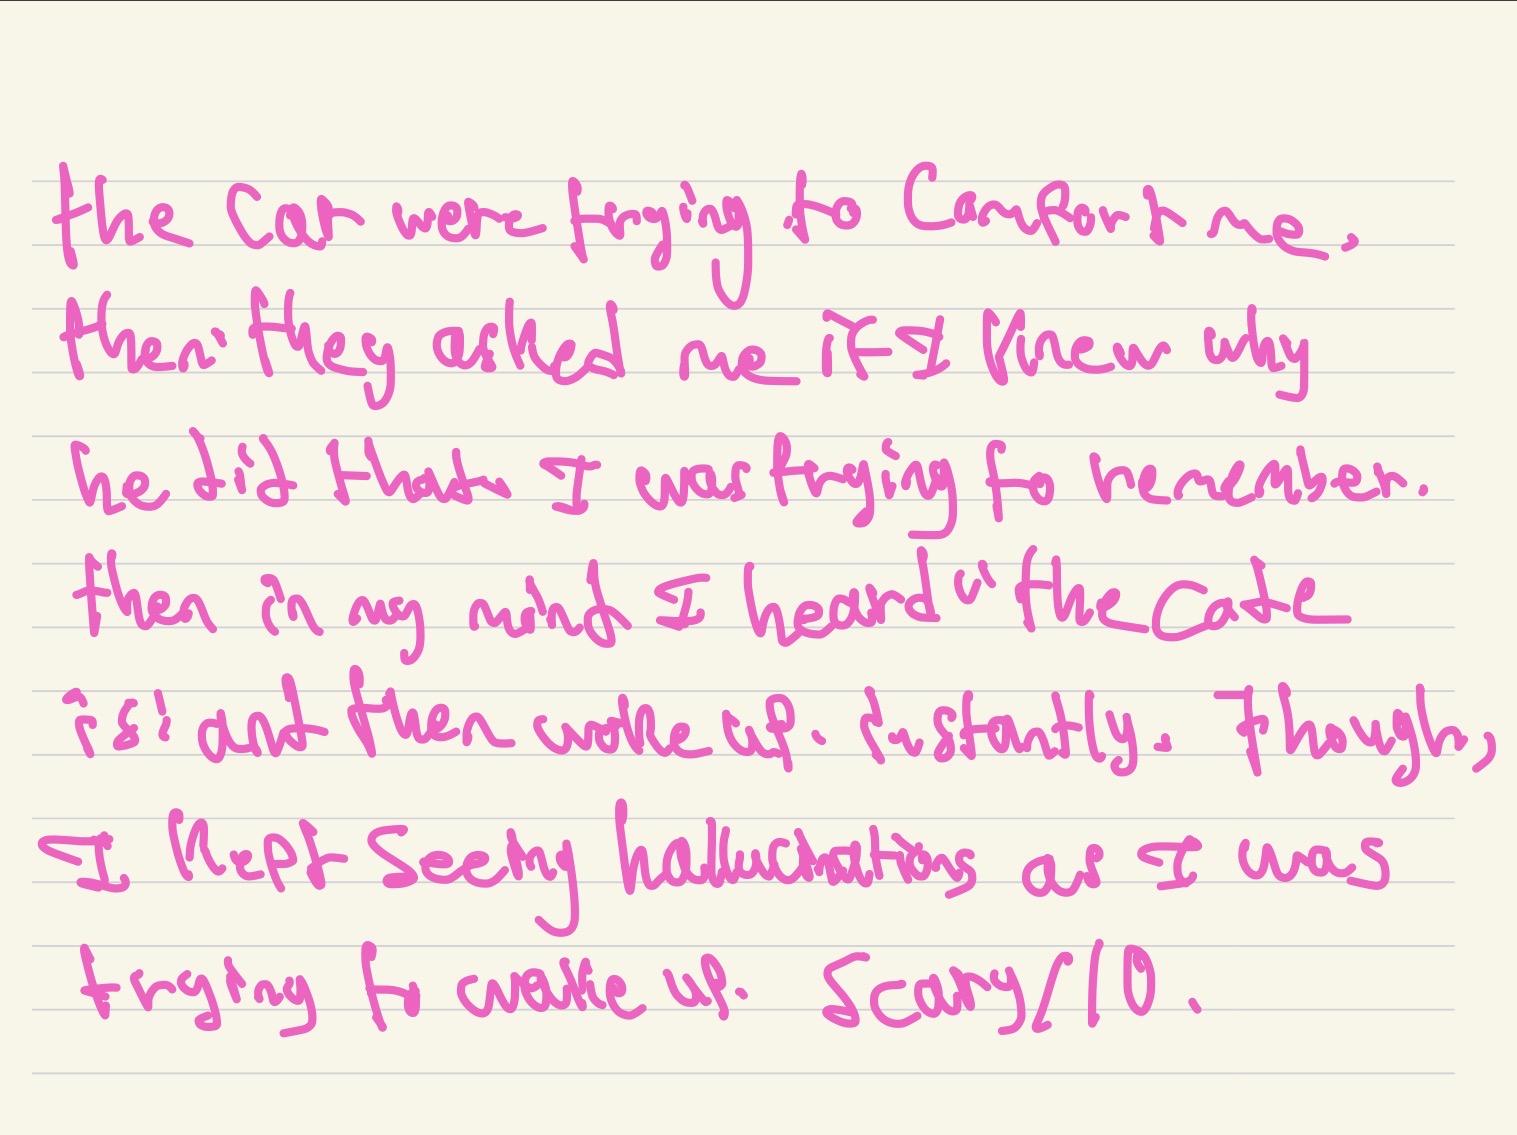 the car were trying to comfort me.
then they asked me if I knew why
he did that. I was trying to remember.
then in my mind I heard "the date
is" and then woke up. instantly. Though,
I kept seeing hallucinations as I was
trying to wake up. Scary/10.